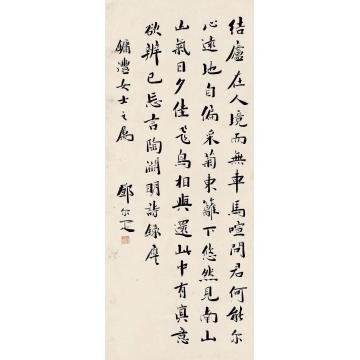 結廬在人境而無車馬喧問君何能尔
心遠地自偏采菊東籬下悠然見南山
山氣日夕佳飛鳥相與還此中有真意
欲辨已忘言陶淵明詩錄應
女士之屬 鄧尔疋